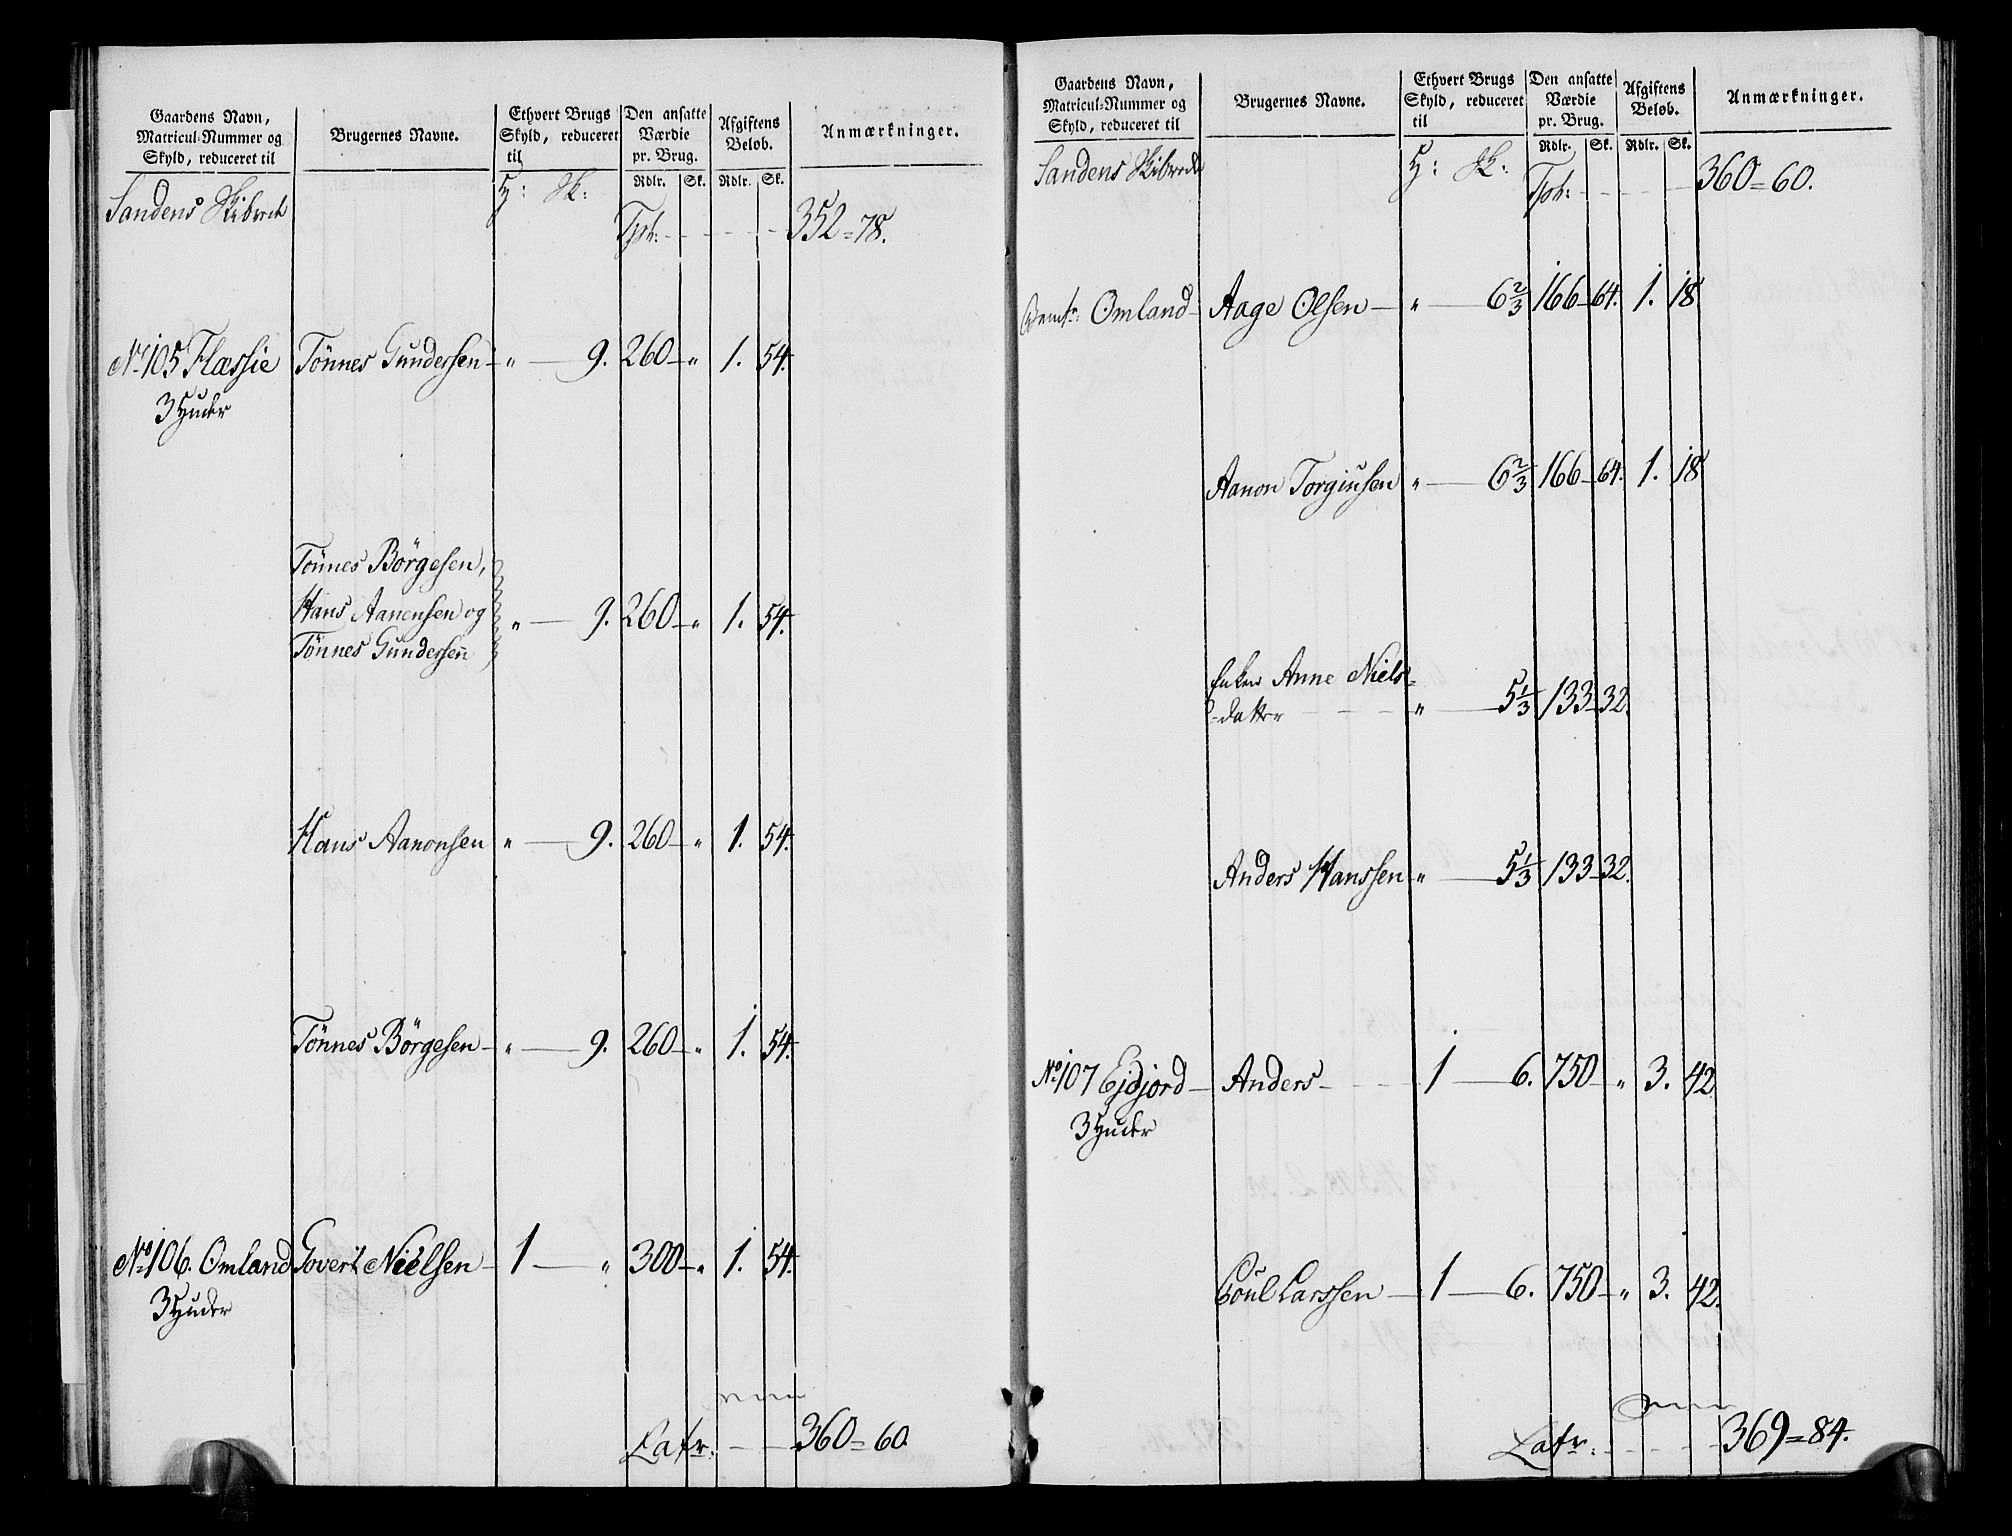 Gaardens Navn, Matricul-Nummer og Skyld, reduceret til | Brugernes Navne. | Ethvert Brugs Skyld, reduceret til | Den ansatte Værdie pr. Brug. | Afgiftens Beløb. | Anmærkninger.
H: Sk: | Rdlr. | Sk. | Rdlr. | Sk.
Sandens Skibrede
Tpt: - - - - - 352=78.
No 105 Flæssie Tönnes Gundersen - „ - 9. 260 - „ 1. 54.
3 Huder
Tönnes Börgesen,
Hans Aanensen og „ - 9. 260 - „ 1. 54.
Tönnes Gundersen
Hans Aanonsen „ - 9. 260 - „ 1. 54.
Tönnes Börgesen - „ - 9. 260 - „ 1. 54.
No 106. Omland Govert Nielsen - 1 - „ 300 - „ 1. 54.
3 Huder
Latr: - - 360=60.
Gaardens Navn, Matricul-Nummer og Skyld, reduceret til | Brugernes Navne. | Ethvert Brugs Skyld, reduceret til | Den ansatte Værdie pr. Brug. | Afgiftens Beløb. | Anmærkninger.
H: Sk: | Rdlr. | Sk. | Rdlr. | Sk.
Sandens Skibrede
Tpt: - - - - - 360=60.
Omland - Aage Olsen - „ - 6 2/3 166 - 64. 1. 18
Aanon Torgiusen „ - 6 2/3 166 - 64. 1. 18
Enken Anne Niels=
-datter - - - „ - 5 1/3 133 - 32.
Anders Hanssen „ - 5 1/3 133 - 32.
No 107 Ejdjord - Anders - - - 1 - 6. 750 - „ 3. 42
3 Huder
Poul Larssen - 1 - 6. 750 - „ 3. 42.
Latr: - - - - 369=84.